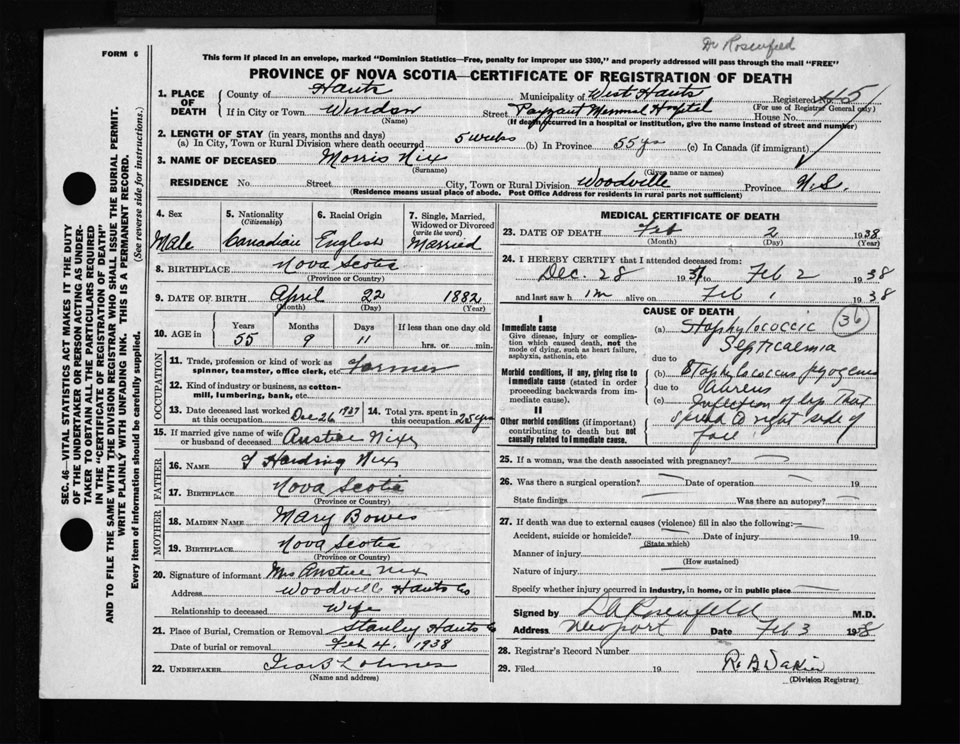 Dr Rosenfeld
FORM 6
This form if placed in an envelope, marked "Dominion Statistics—Free, penalty for improper use $300," and properly addressed will pass through the mail "FREE"
PROVINCE OF NOVA SCOTIA—CERTIFICATE OF REGISTRATION OF DEATH
1. PLACE OF DEATH
County of Hants Municipality of West Hants Registered No. 451
(For use of Registrar General only)
If in City or Town Windsor Street Payzant Memorial Hospital House No.
(Name) (If death occurred in a hospital or institution, give the name instead of street and number)
2. LENGTH OF STAY (in years, months and days)
(a) In City, Town or Rural Division where death occurred 5 weeks (b) In Province 55 ys (c) In Canada (if immigrant)
3. NAME OF DECEASED Morris Nix
(Surname) (Given name or names)
RESIDENCE No. Street City, Town or Rural Division Woodville Province N.S.
(Residence means usual place of abode. Post Office Address for residents in rural parts not sufficient)
SEC. 46—VITAL STATISTICS ACT MAKES IT THE DUTY
OF THE UNDERTAKER OR PERSON ACTING AS UNDER-
TAKER TO OBTAIN ALL THE PARTICULARS REQUIRED
IN THE "CERTIFICATE OF REGISTRATION OF DEATH"
AND TO FILE THE SAME WITH THE DIVISION REGISTRAR WHO SHALL ISSUE THE BURIAL PERMIT.
WRITE PLAINLY WITH UNFADING INK. THIS IS A PERMANENT RECORD.
Every item of information should be carefully supplied. (See reverse side for instructions.)
4. Sex Male
5. Nationality (Citizenship) Canadian
6. Racial Origin English
7. Single, Married, Widowed or Divorced (write the word) Married
8. BIRTHPLACE Nova Scotia
(Province or Country)
9. DATE OF BIRTH April 22 1882
(Month) (Day) (Year)
10. AGE in Years Months Days If less than one day old
55 9 11 hrs. or min.
OCCUPATION
11. Trade, profession or kind of work as spinner, teamster, office clerk, etc. Farmer
12. Kind of industry or business, as cotton-mill, lumbering, bank, etc.
13. Date deceased last worked at this occupation Dec 26 1937
14. Total yrs. spent in this occupation 25 yrs
15. If married give name of wife or husband of deceased Anstice Nix
FATHER
16. NAME Harding Nix
17. BIRTHPLACE Nova Scotia
(Province or Country)
MOTHER
18. MAIDEN NAME Mary Bowes
19. BIRTHPLACE Nova Scotia
(Province or Country)
20. Signature of informant Mrs Anstice Nix
Address Woodville Hants Co
Relationship to deceased Wife
21. Place of Burial, Cremation or Removal Stanley Hants Co
Date of burial or removal Feb 4, 1938
22. UNDERTAKER
(Name and address)
MEDICAL CERTIFICATE OF DEATH
23. DATE OF DEATH Feb 2 1938
(Month) (Day) (Year)
24. I HEREBY CERTIFY that I attended deceased from:
Dec. 28 1937 to Feb 2 1938
and last saw h im alive on Feb 1 1938
CAUSE OF DEATH
36
I
Immediate cause
Give disease, injury or complication which caused death, not the mode of dying, such as heart failure, asphyxia, asthenia, etc
Morbid conditions, if any, giving rise to immediate cause (stated in order proceeding backwards from immediate cause).
II
Other morbid conditions (if important) contributing to death but not causally related to immediate cause.
(a) Staphylococcic
Septicaemia
due to
(b) Staphylococcus pyogenes
due to Aureus
(c) Infection of lip that
spread to right side of
face
25. If a woman, was the death associated with pregnancy?
26. Was there a surgical operation? Date of operation 19
State findings Was there an autopsy?
27. If death was due to external causes (violence) fill in also the following:—
Accident, suicide or homicide? Date of injury 19
(State which)
Manner of injury
(How sustained)
Nature of injury
Specify whether injury occurred in industry, in home, or in public place
Signed by Rosenfeld M.D.
Address Newport Date Feb 3 1938
28. Registrar's Record Number
29. Filed 19
(Division Registrar)